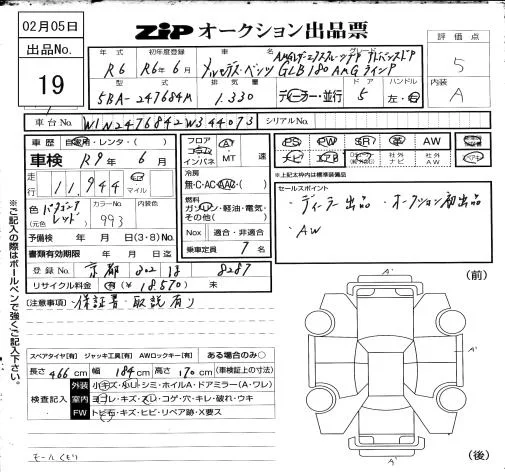 02月05日
ZIP オークション出品票
出品No.
19
評価点
5
内装
A
年式 初年度登録 車名 グレード
R6 R6年6月 メルセデス・ベンツ GLB180 AMGライン
型式 排気量 ドア ハンドル
5BA-247684M 1.330 ディーラー・並行 5 左・右
車台No. W1N2476842W344073 シリアルNo.
車歴 自家用・レンタ・( )
車検 R9年 6月
走行 11,944 km マイル
色 パタゴニアレッド (元色) カラーNo. 993 内装色
予備検 年 月 日(3・8)No.
書類有効期限 年 月 日迄
登録No. 京都 302 は 8287
リサイクル料金 有(¥18,570) 未
フロア コラム インパネ A MT 速
冷房 無・C・AC・AAC・( )
燃料 ガソリン・軽油・電気・その他( )
Nox 適合・非適合
乗車定員 7 名
PS PW SR 革 AW
ナビ エアB 社外ナビ 社外AW
※上記太枠内は標準装備品
セールスポイント
・ディーラー出品 ・オークション初出品
・AW
[注意事項]・保証書・取説有り
※ご記入の際はボールペンで強くご記入下さい。
スペアタイヤ[有] ジャッキ工具[有] AWロックキー[有] ある場合のみ○
長さ 466 cm 幅 184 cm 高さ 170 cm (車検証上の寸法)
検査記入
外装 小キズ・小凹・シミ・ホイルA・ドアミラー(A・ワレ)
室内 ヨゴレ・キズ・スレ・コゲ・穴・キレ・破れ・ウキ
FW トビ石・キズ・ヒビ・リペア跡・X要ス
モールくもり
(前)
(後)
A'
A'